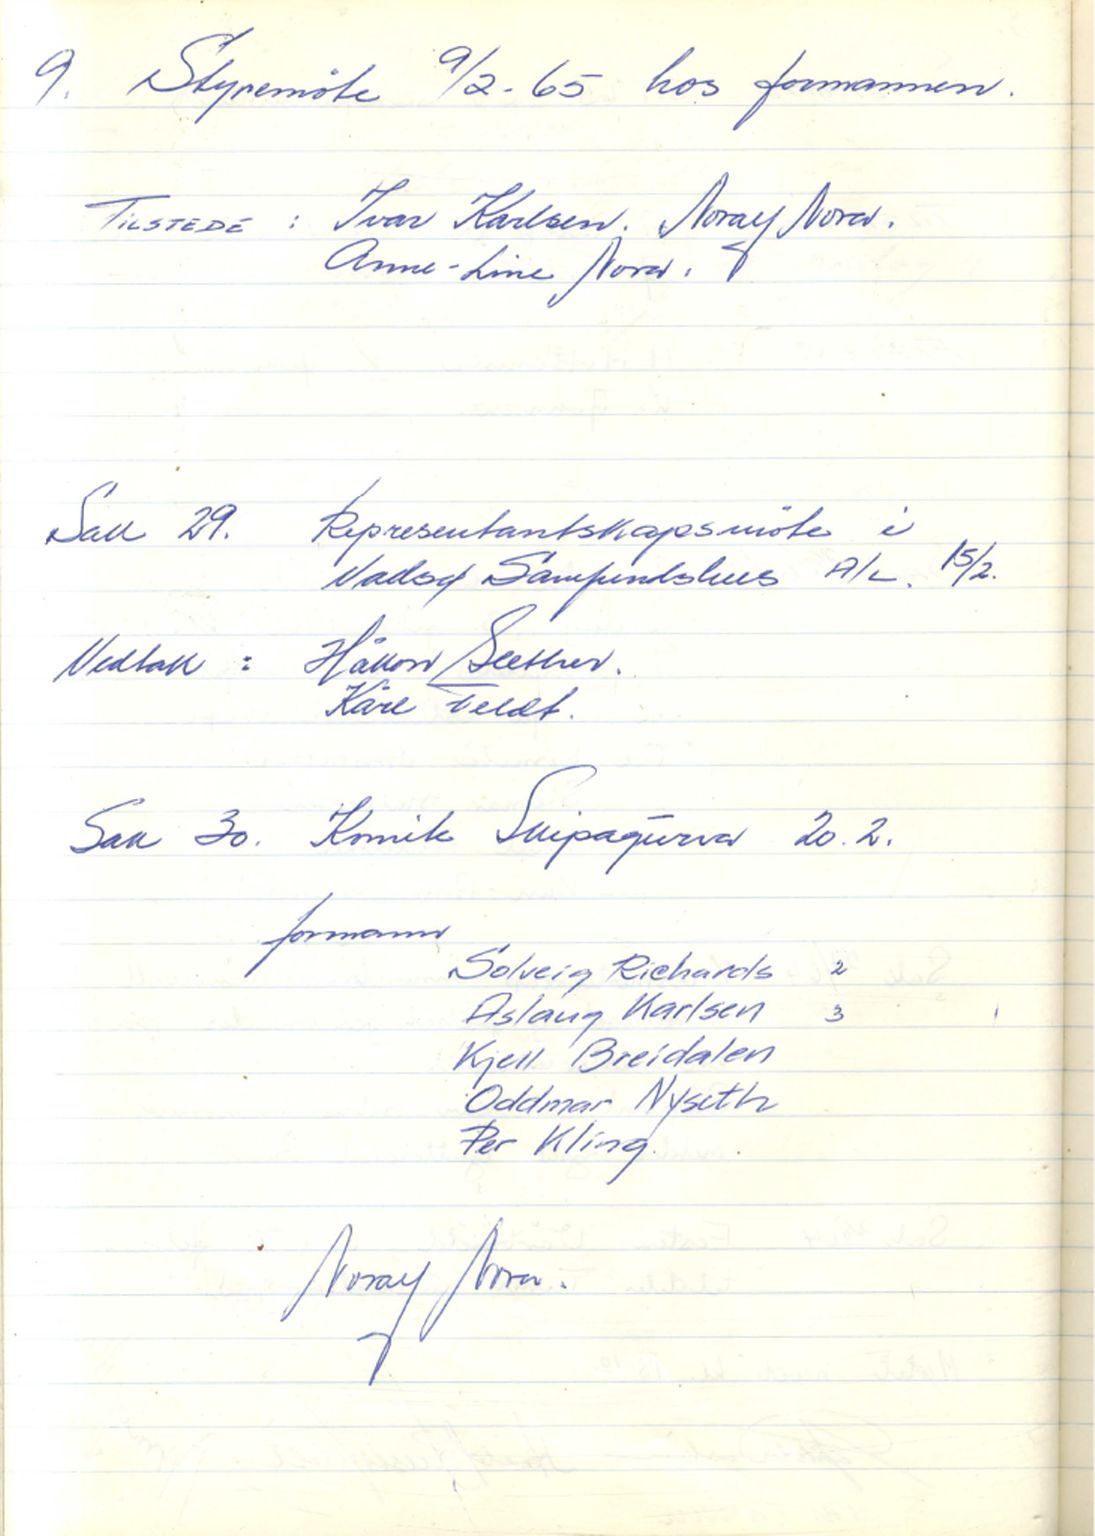 9. Styremöte 9/2-65 hos formannen.
TILSTEDE : Ivar Karlsen. Noralf Nora.
Anne-Line Nora.
Sak 29. Representantskapsmöte i
Vadsø Samfundshus A/L. 15/2.
Vedtak : Håkon Sæther.
Kåre Tveldt.
Sak 30. Komite Skipagurra 20.2.
formann
Solveig Richards 2
Aslaug Karlsen 3
Kjell Breidalen
Oddmar Nyseth
Per Kling.
Nora.